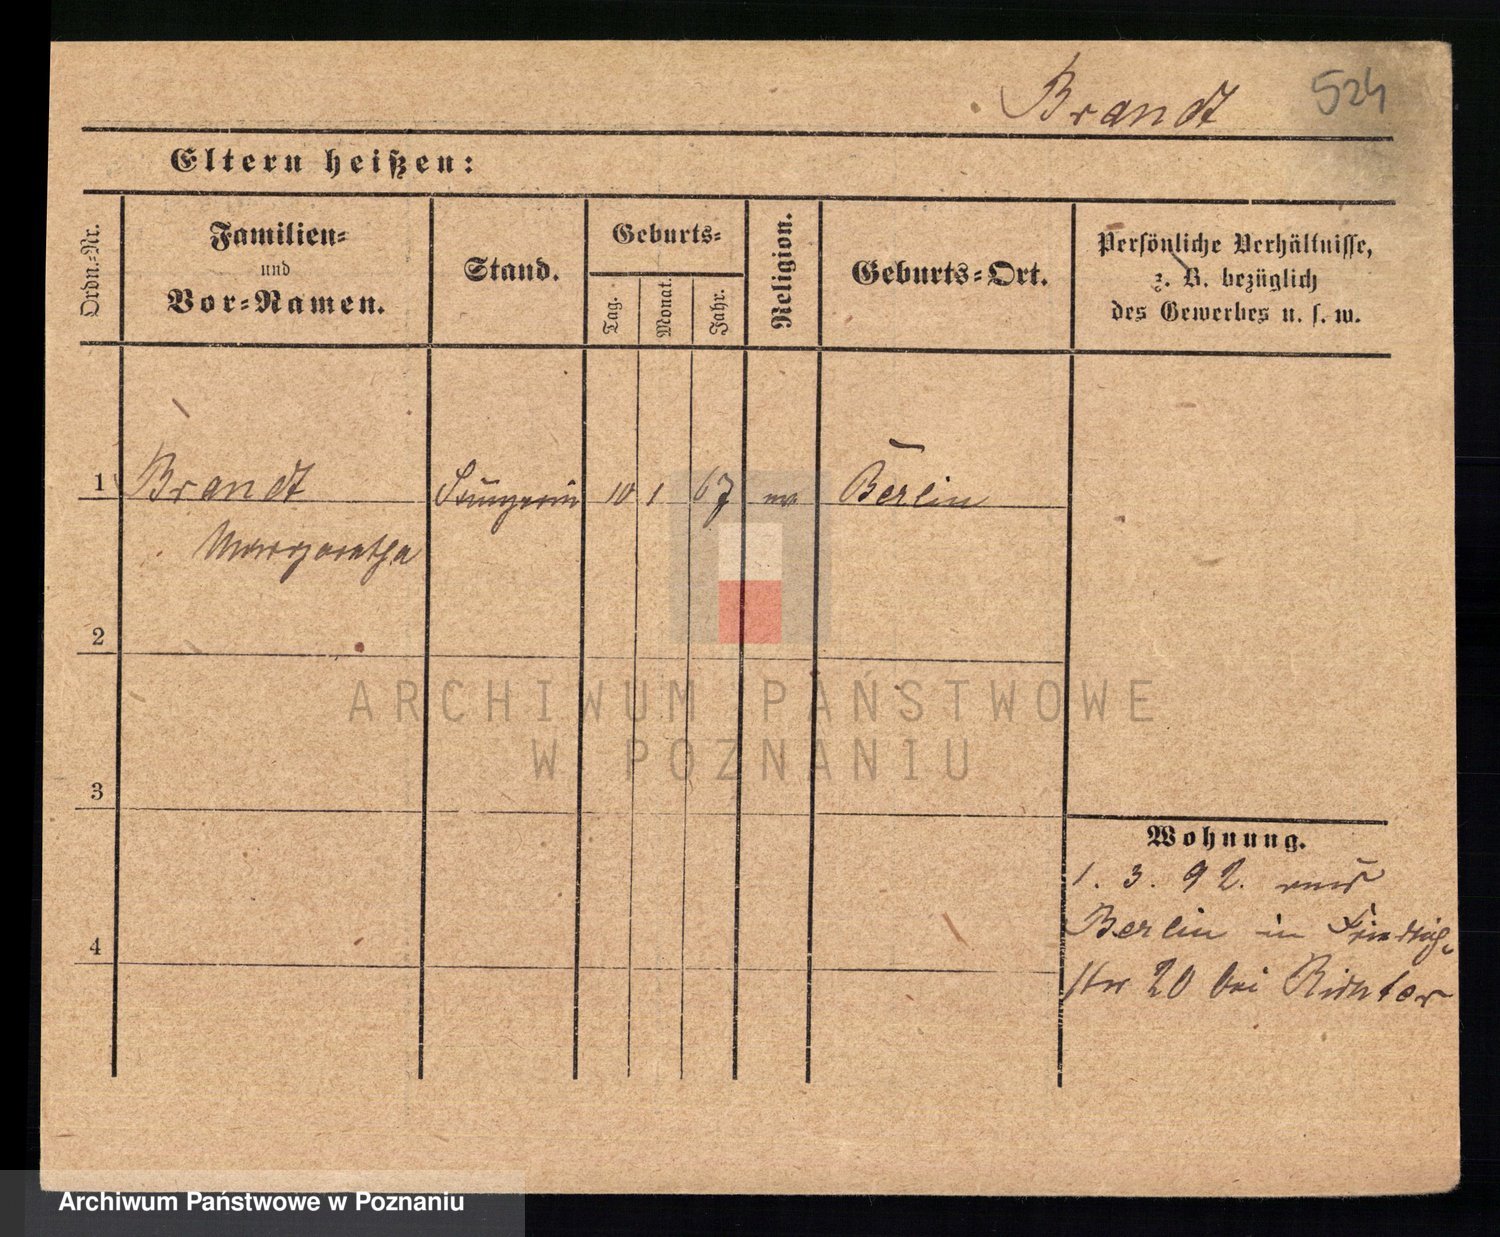 Brandt 524
Eltern heißen:
Ordn.-Nr.
Familien-
und
Vor-Namen.
Stand.
Geburts-
Tag.
Monat.
Jahr.
Religion.
Geburts-Ort.
Persönliche Verhältnisse,
z. B. bezüglich
des Gewerbes u. s. w.
1 Brandt Sängerin 10 1 67 ev Berlin
Margarethe
2
3
4
Wohnung.
1. 3. 92. aus
Berlin in Friedrich-
str 20 bei Richter
ARCHIWUM PAŃSTWOWE
W POZNANIU
Archiwum Państwowe w Poznaniu